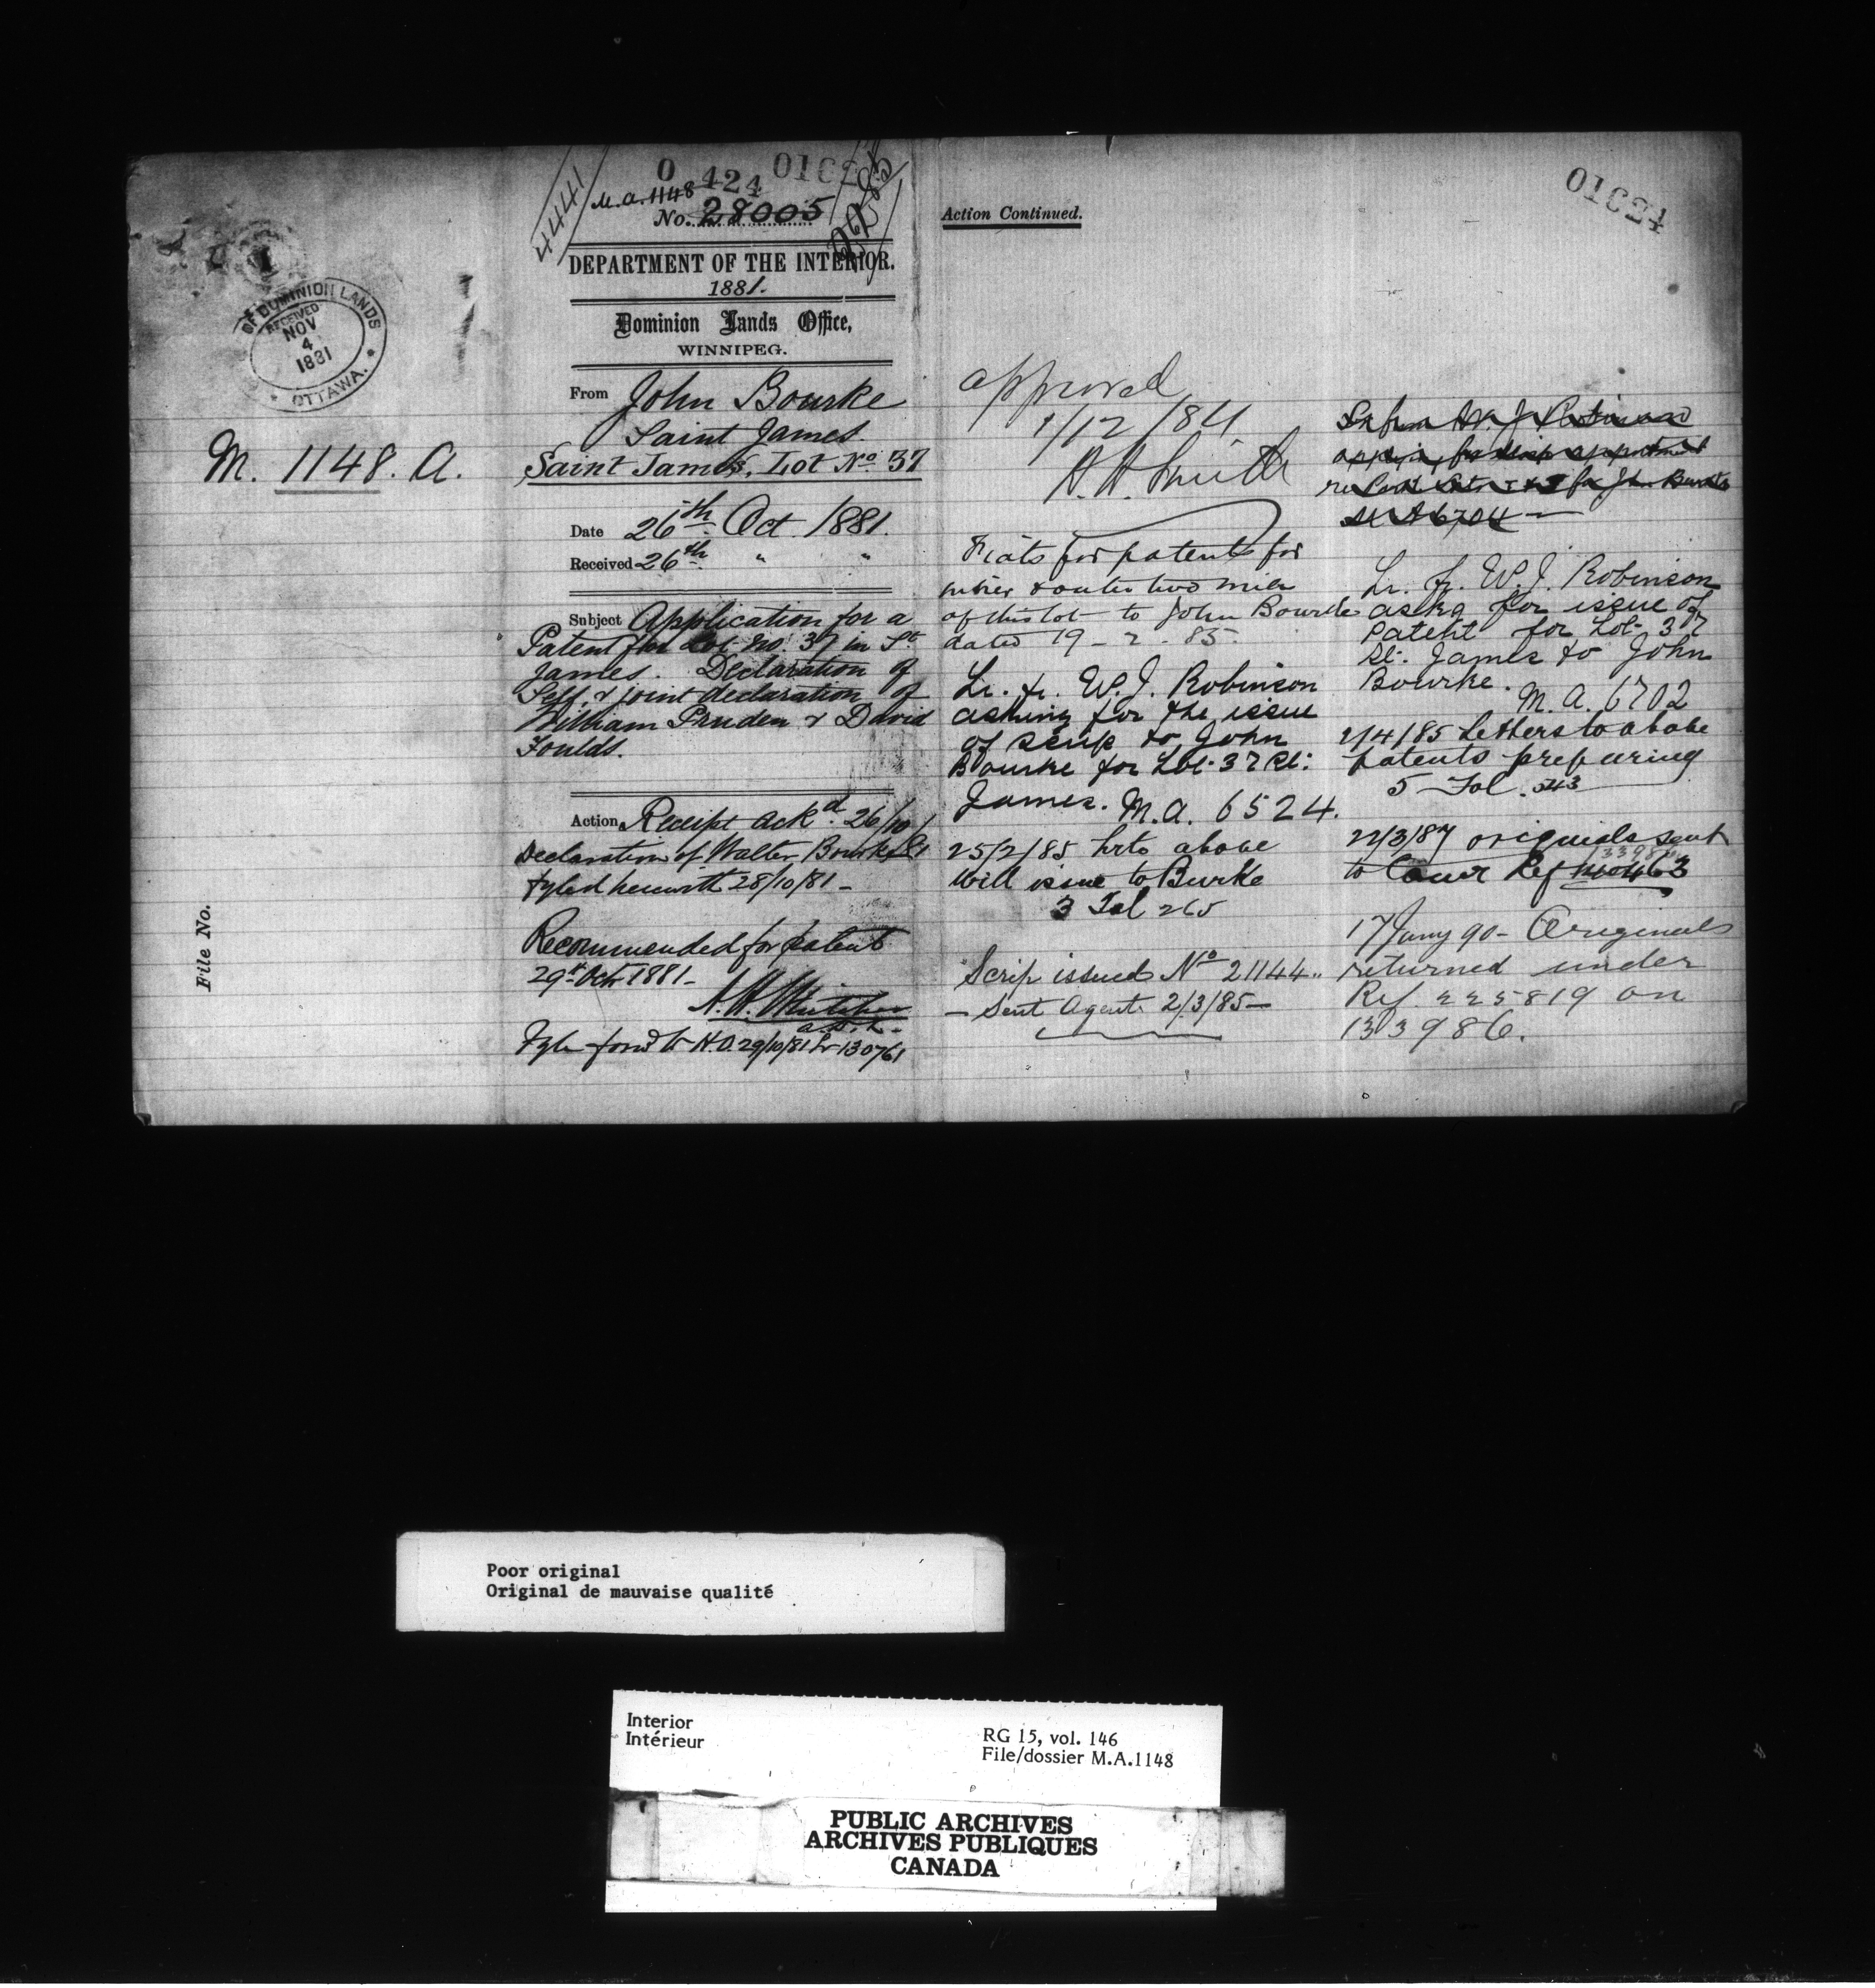 OF DOMINION LANDS
RECEIVED
NOV
4
1881
OTTAWA.
M. 1148. A.
File No.
4441
0 424
M.A. 1148
No. 28005
DEPARTMENT OF THE INTERIOR.
1881.
Dominion Lands Office,
WINNIPEG.
From John Bourke
Saint James.
Saint James, Lot No. 37
Date 26th Oct. 1881.
Received 26th " "
Subject Application for a
Patent for Lot No. 37 in St.
James. Declaration of
Self & joint declaration of
William Pruden & David
Foulds.
Action Receipt ackd. 26/10/81
Declaration of Walter Bourke
fyled herewith 28/10/81 -
Recommended for patent
29th Oct 1881 -
Fyle forwd to H.O. 29/10/81 Lr 130761
Action Continued.
approved
1/12/84
H. H. Smith
Fiats for patents for
inner & outer two mile
of this lot to John Bourke
dated 19 - 2 - 85.
Lr. fr. W. J. Robinson
asking for the issue
of scrip to John
Bourke for Lot 37 St.
James. M.A. 6524.
25/2/85 Lr to above
will issue to Burke
3 Fol 265
Scrip issued No 21144..
- Sent Agent 2/3/85 -
01024
Lr. fr. W. J. Robinson
askg for issue of
Patent for Lot 37
St. James to John
Bourke.
M.A. 6702
2/4/85 Letters to above
patents preparing
5 Fol. 543
22/3/87 originals sent
to Court Ref
17 Jany 90 - Originals
returned under
Ref. 225819 on
133986.
Poor original
Original de mauvaise qualité
Interior
Intérieur
RG 15, vol. 146
File/dossier M.A.1148
PUBLIC ARCHIVES
ARCHIVES PUBLIQUES
CANADA